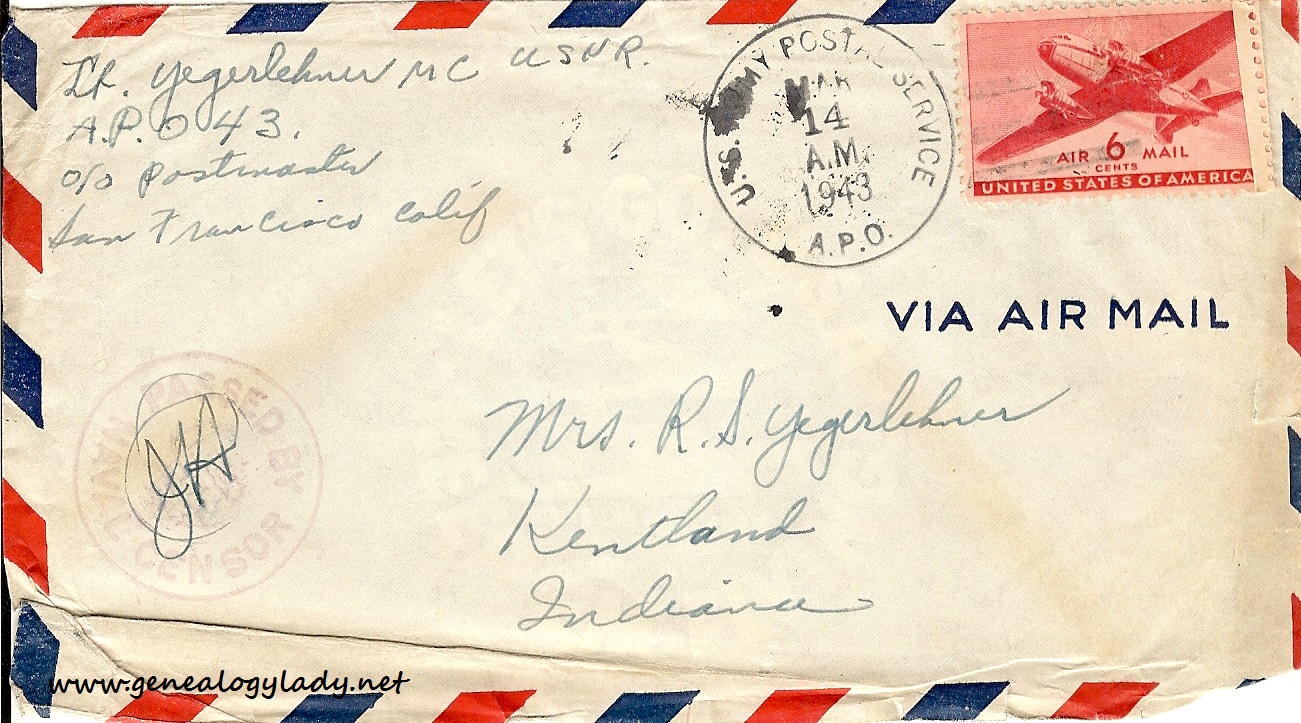 Lt. Yegerlehner MC USNR.
A.P.O 43.
c/o Postmaster
San Francisco Calif
U.S. ARMY POSTAL SERVICE
MAR
14
A.M.
1943
A.P.O.
AIR 6 MAIL
CENTS
UNITED STATES OF AMERICA
VIA AIR MAIL
Mrs. R. S. Yegerlehner
Kentland
Indiana
PASSED BY
NAVAL CENSOR
JH
www.genealogylady.net